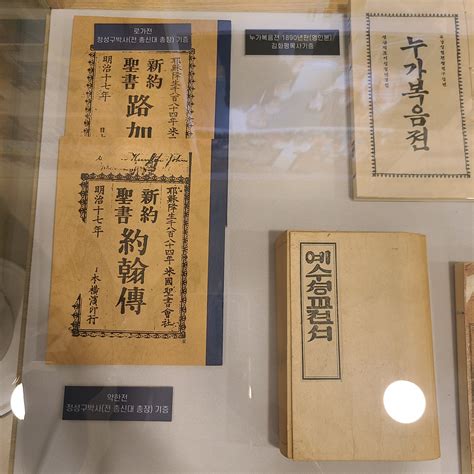 로가전
정성구박사(전 총신대 총장) 기증
耶穌降生千八百八十四年 米
新約
聖書
路加
明治十七年
耶穌降生千八百八十四年 米國聖書會社
新約
聖書
約翰傳
明治十七年
本橫濱印行
약한전
정성구박사(전 총신대 총장) 기증
누가복음전 1890년판(영인본)
누가복음젼
예수셩교젼셔